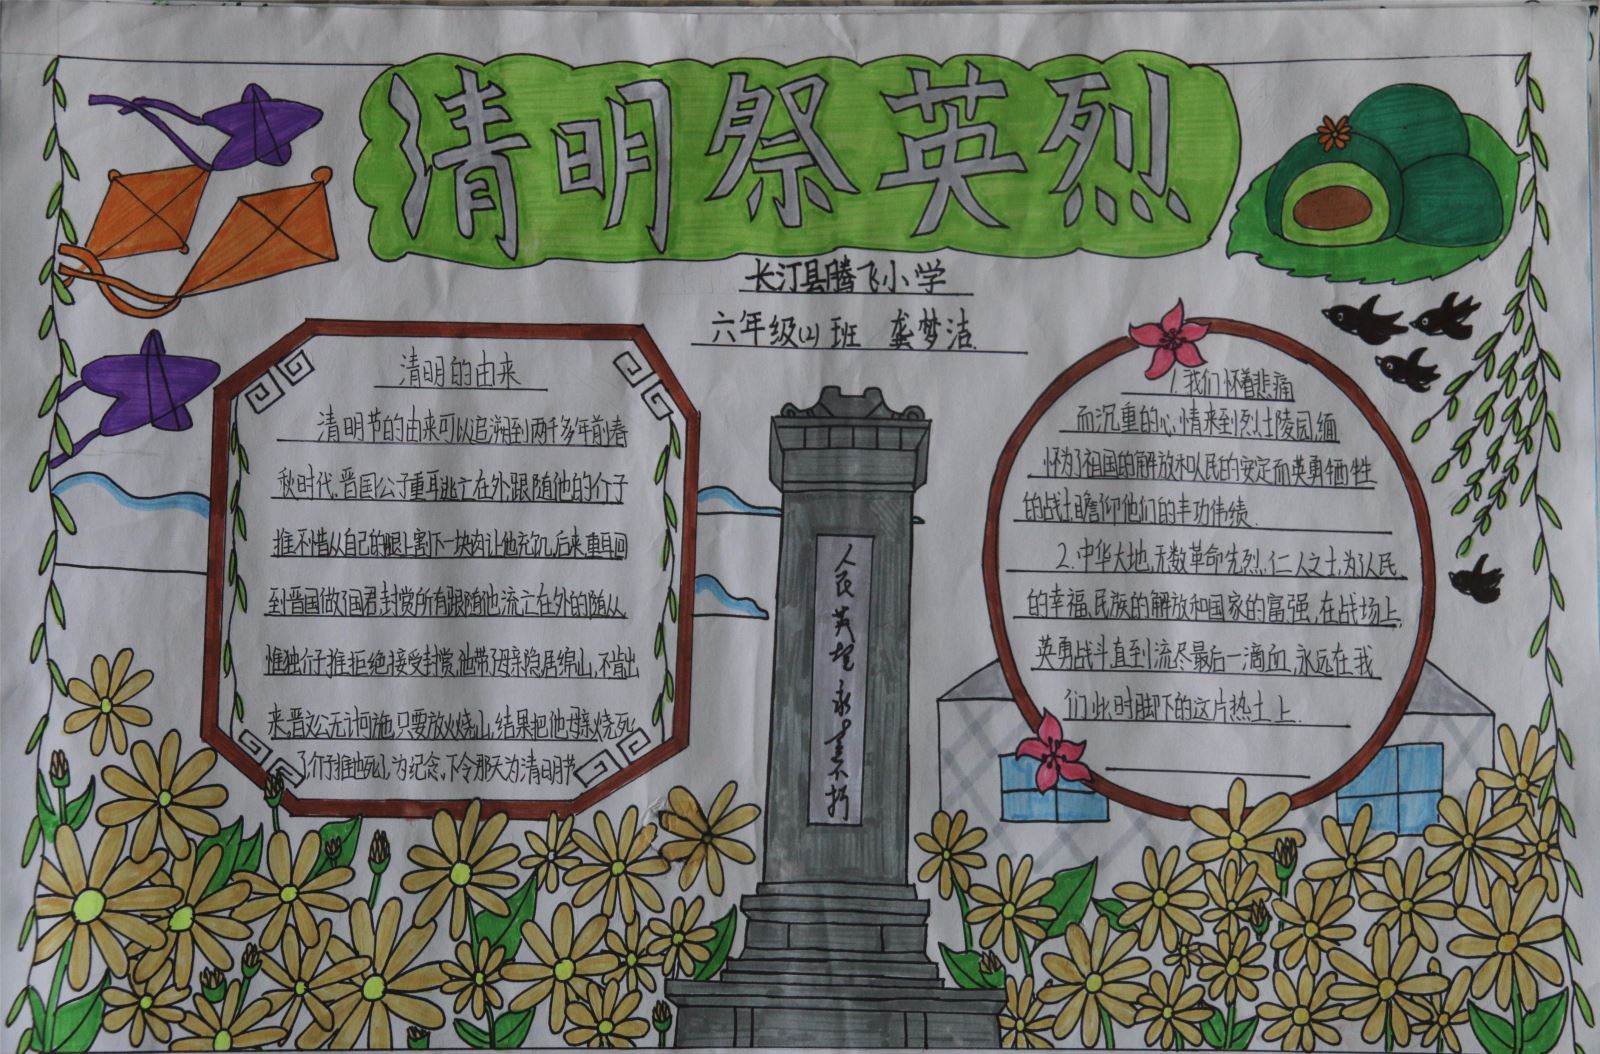 清明祭英烈
长汀县腾飞小学
六年级(2)班 龚梦洁
清明的由来
清明节的由来可以追溯到两千多年前春
秋时代,晋国公子重耳逃亡在外,跟随他的介子
推不惜从自己的腿上割下一块肉让他充饥,后来重耳回
到晋国做了国君,封赏所有跟随他流亡在外的随从,
惟独介子推拒绝接受封赏,他带了母亲隐居绵山,不肯出
来,晋文公无计可施,只要放火烧山,结果把他母亲烧死
了介子推也死了,为纪念,下令那天为清明节
人民英雄永垂不朽
1.我们怀着悲痛
而沉重的心情来到烈士陵园,缅
怀为了祖国的解放和人民的安定而英勇牺牲
的战士,瞻仰他们的丰功伟绩.
2.中华大地,无数革命先烈,仁人之士,为了人民
的幸福、民族的解放和国家的富强,在战场上,
英勇战斗直到流尽最后一滴血,永远在我
们此时脚下的这片热土上.